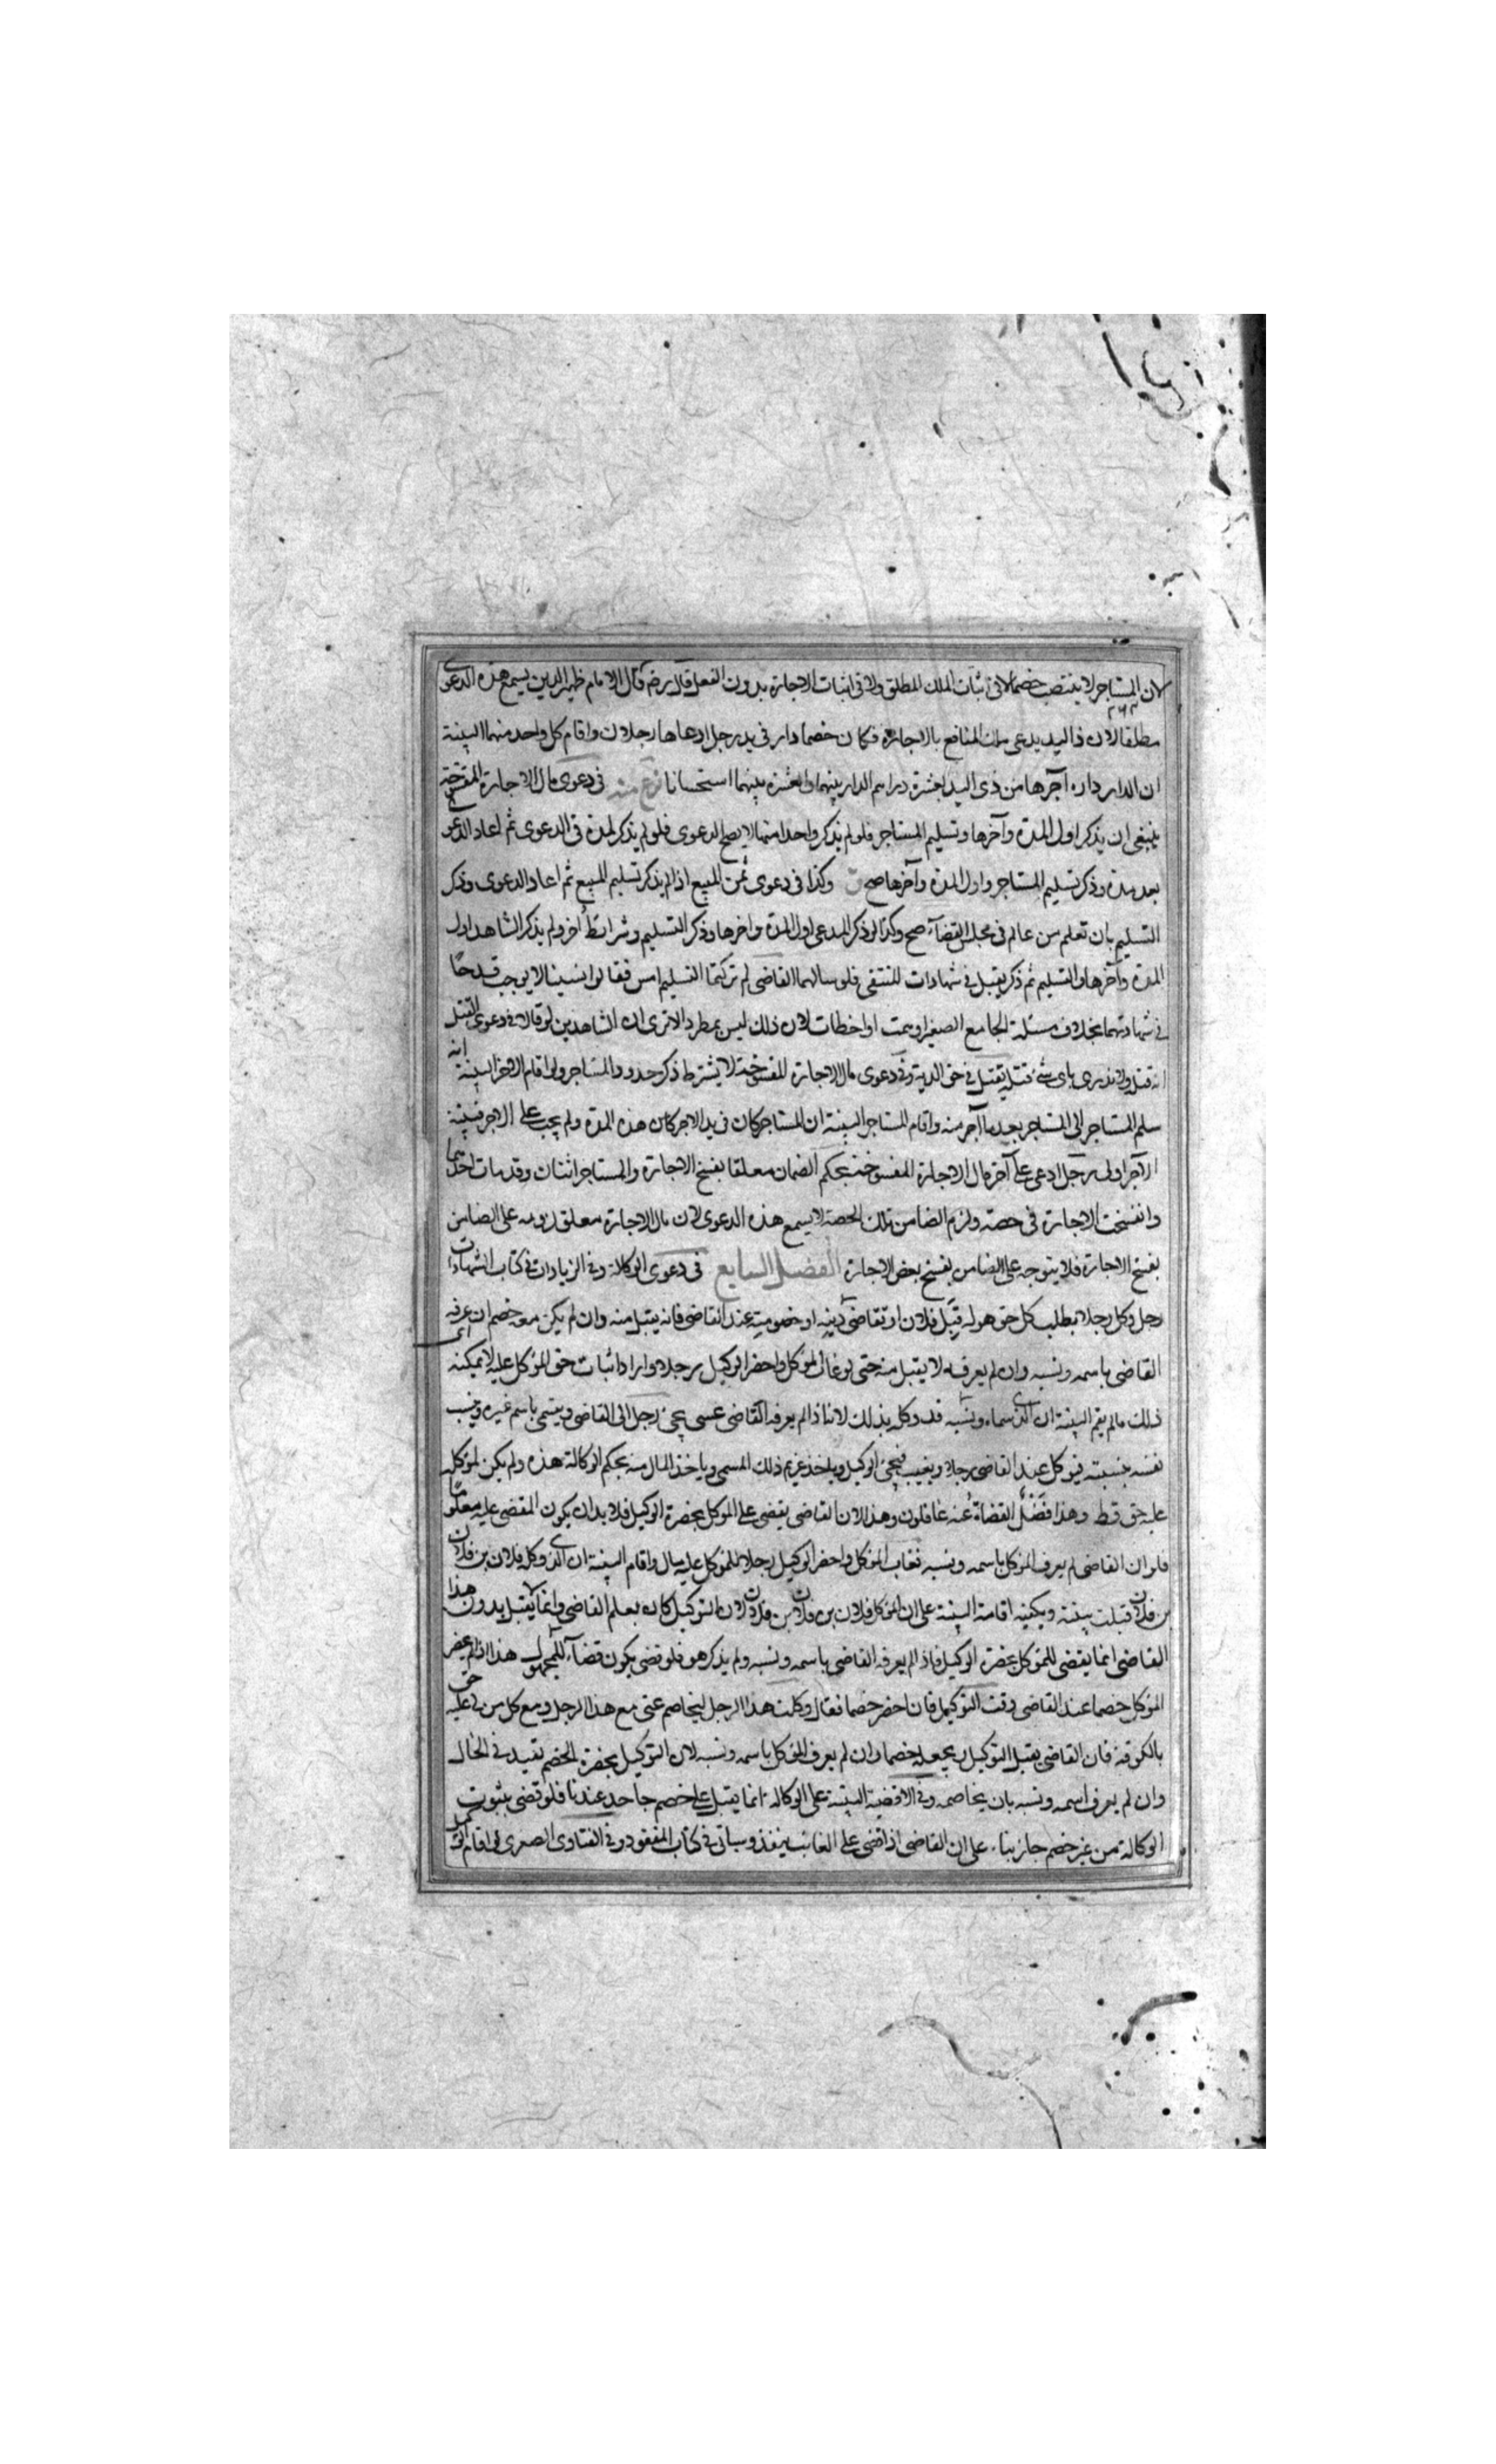 لان المستاجر لا ينتصب خصما لا في اثبات الملك المطلق ولا في اثبات الاجارة بدون الفعل قال رضه قال الامام ظهير الدين يسمع هذه الدعوى
٢٦٣
مطلقا لان ذا اليد يدعى ملك المنافع بالاجارة فكان خصما دار في يد رجل ادعاها رجلان واقام كل واحد منهما البينة
ان الدار داره آجرها من ذى اليد بعشرة دراهم الدار بينهما والعشرة بينهما استحسانا نوع منه في دعوى مال الاجارة المفسوخة
ينبغى ان يذكر اول المدة وآخرها وتسليم المستاجر فلو لم يذكر واحدا منهما لا يصح الدعوى فلو لم يذكر المدة في الدعوى ثم اعاد الدعوى
بعد مدة وذكر تسليم المستاجر واول المدة وآخرها صح وكذا في دعوى ثمن المبيع اذا لم يذكر تسليم المبيع ثم اعاد الدعوى وذكر
التسليم بان تعلم من عالم في مجلس القضاء صح وكذا لو ذكر المدعى اول المدة واخرها وذكر التسليم وشرائط اخر ولم يذكر الشاهد اول
المدة وآخرها والتسليم ثم ذكر يقبل في شهادات المنتقى فلو سالهما القاضى لم تركتما التسليم امس فقالوا نسينا لا يوجب قدحا
في شهادتهما بخلاف مسئلة الجامع الصغير اوهمت او اخطات لان ذلك ليس بمطرد الا ترى ان الشاهدين لو قالا في دعوى القتل
انه قتل ولا ندرى باى شئ قتله يقبل في حق الدية وفى دعوى مال الاجارة المفسوخة لا يشترط ذكر حدود المستاجر ولو اقام الآجر البينة انه
سلم المستاجر الى المستاجر بعد ما آجر منه واقام المستاجر البينة ان المستاجر كان في يد الاجر كل هذه المدة ولم يجب على الاجر فبينة
الآجر اولى رجل ادعى على آخر مال الاجارة المفسوخة بحكم الضمان معلقا بفسخ الاجارة والمستاجر اثنان وقد مات احدهما
وانفسخت الاجارة في حصته ولزم الضامن تلك الحصة لا يسمع هذه الدعوى لان مال الاجارة معلق لزومه على الضامن
بفسخ الاجارة فلا يتوجه على الضامن بفسخ بعض الاجارة الفصل السابع في دعوى الوكالة وفى الزيادات في كتاب الشهادات
رجل وكل رجلا بطلب كل حق هو له قبل فلان او تقاضى دينه او خصومته عند القاضى فانه يقبل منه وان لم يكن معه خصم ان عرفه اى
القاضى باسمه ونسبه وان لم يعرفه لا يقبل منه حتى لو غاب الموكل واحضر الوكيل رجلا واراد اثبات حق الموكل عليه لا يمكنه
ذلك ما لم يقم البينة ان الذى سماه ونسبه قد وكله بذلك لانا اذا لم يعرفه القاضى عسى يجئ رجل الى القاضى ويتسمى باسم غيره وينسب
نفسه بنسبته فيوكل عند القاضى رجلا ويغيب فيجئ الوكيل وياخذ غريم ذلك المسمى وياخذ المال منه بحكم الوكالة هذه ولم يكن لموكله
عليه حق قط وهذا فصل القضاة عنه غافلون وهذا لان القاضى يقضى على الموكل بحضرة الوكيل فلا بد ان يكون المقضى عليه معلوما
فلو ان القاضى لم يعرف الموكل باسمه ونسبه فغاب الموكل واحضر الوكيل رجلا للموكل عليه مال واقام البينة ان الذى وكله فلان بن فلان
بن فلان قبلت بينته ويكفيه اقامة البينة على ان الموكل فلان بن فلان بن فلان لان التوكيل كان بعلم القاضى وانما لا يقبل بدون هذا
القاضى انما يقضى للموكل بحضرة الوكيل فاذا لم يعرفه القاضى باسمه ونسبه ولم يذكر هو فلو قضى يكون قضاء للمجهول هذا اذا لم يحضر
الموكل خصما عند القاضى وقت التوكيل فان احضر خصما فقال وكلت هذا الرجل ليخاصم عنى مع هذا الرجل ومع كل من لى عليه حق
بالكوفة فان القاضى يقبل التوكيل ويجعله خصما وان لم يعرف الموكل باسمه ونسبه لان التوكيل بحضرة الخصم يفيد في الحال
وان لم يعرف اسمه ونسبه بان يخاصمه وفى الاقضية البينة على الوكالة انما يقبل على خصم جاحد عندنا فلو قضى بثبوت
الوكالة من غير خصم جاز بناء على ان القاضى اذا قضى على الغائب ينفذ وسياتى في كتاب المفقود وفى الفتاوى الصغرى لو اقام الوكيل